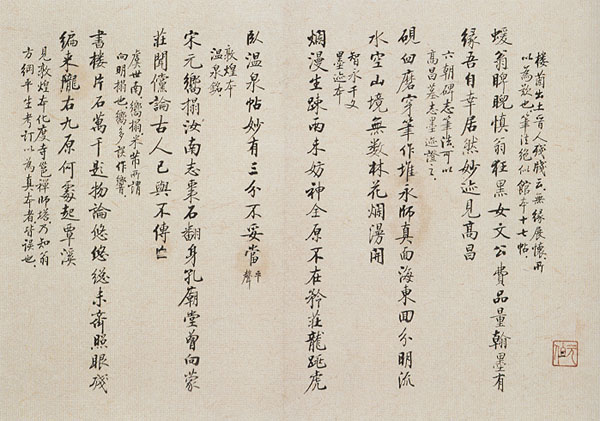 樓蘭出土晉人殘牋云無緣展懷所
以為歎也筆法絕似館本十七帖
蝯翁睥睨慎翁狂黑女文公費品量翰墨有
緣吾自幸居然妙迹見高昌
六朝碑志筆法可以
高昌墓志墨迹證之
硯臼磨穿筆作堆永師真面海東回分明流
水空山境無數林花爛漫開
智永千文
墨迹本
爛漫生疎兩未妨神全原不在矜莊龍跳虎
臥溫泉帖妙有三分不妥當平聲
敦煌本
溫泉銘
宋元嚮搨汝南志棗石翻身孔廟堂曾向蒙
莊聞儻論古人已與不傳亡
虞世南嚮搨米芾所謂
向明搨也嚮多誤作響
書樓片石萬千題物論悠悠總未齊照眼殘
編來隴右九原何處起覃溪
見敦煌本化度寺邕禪師塔乃知翁
方綱平生考訂以為真本者皆誤也
元伯